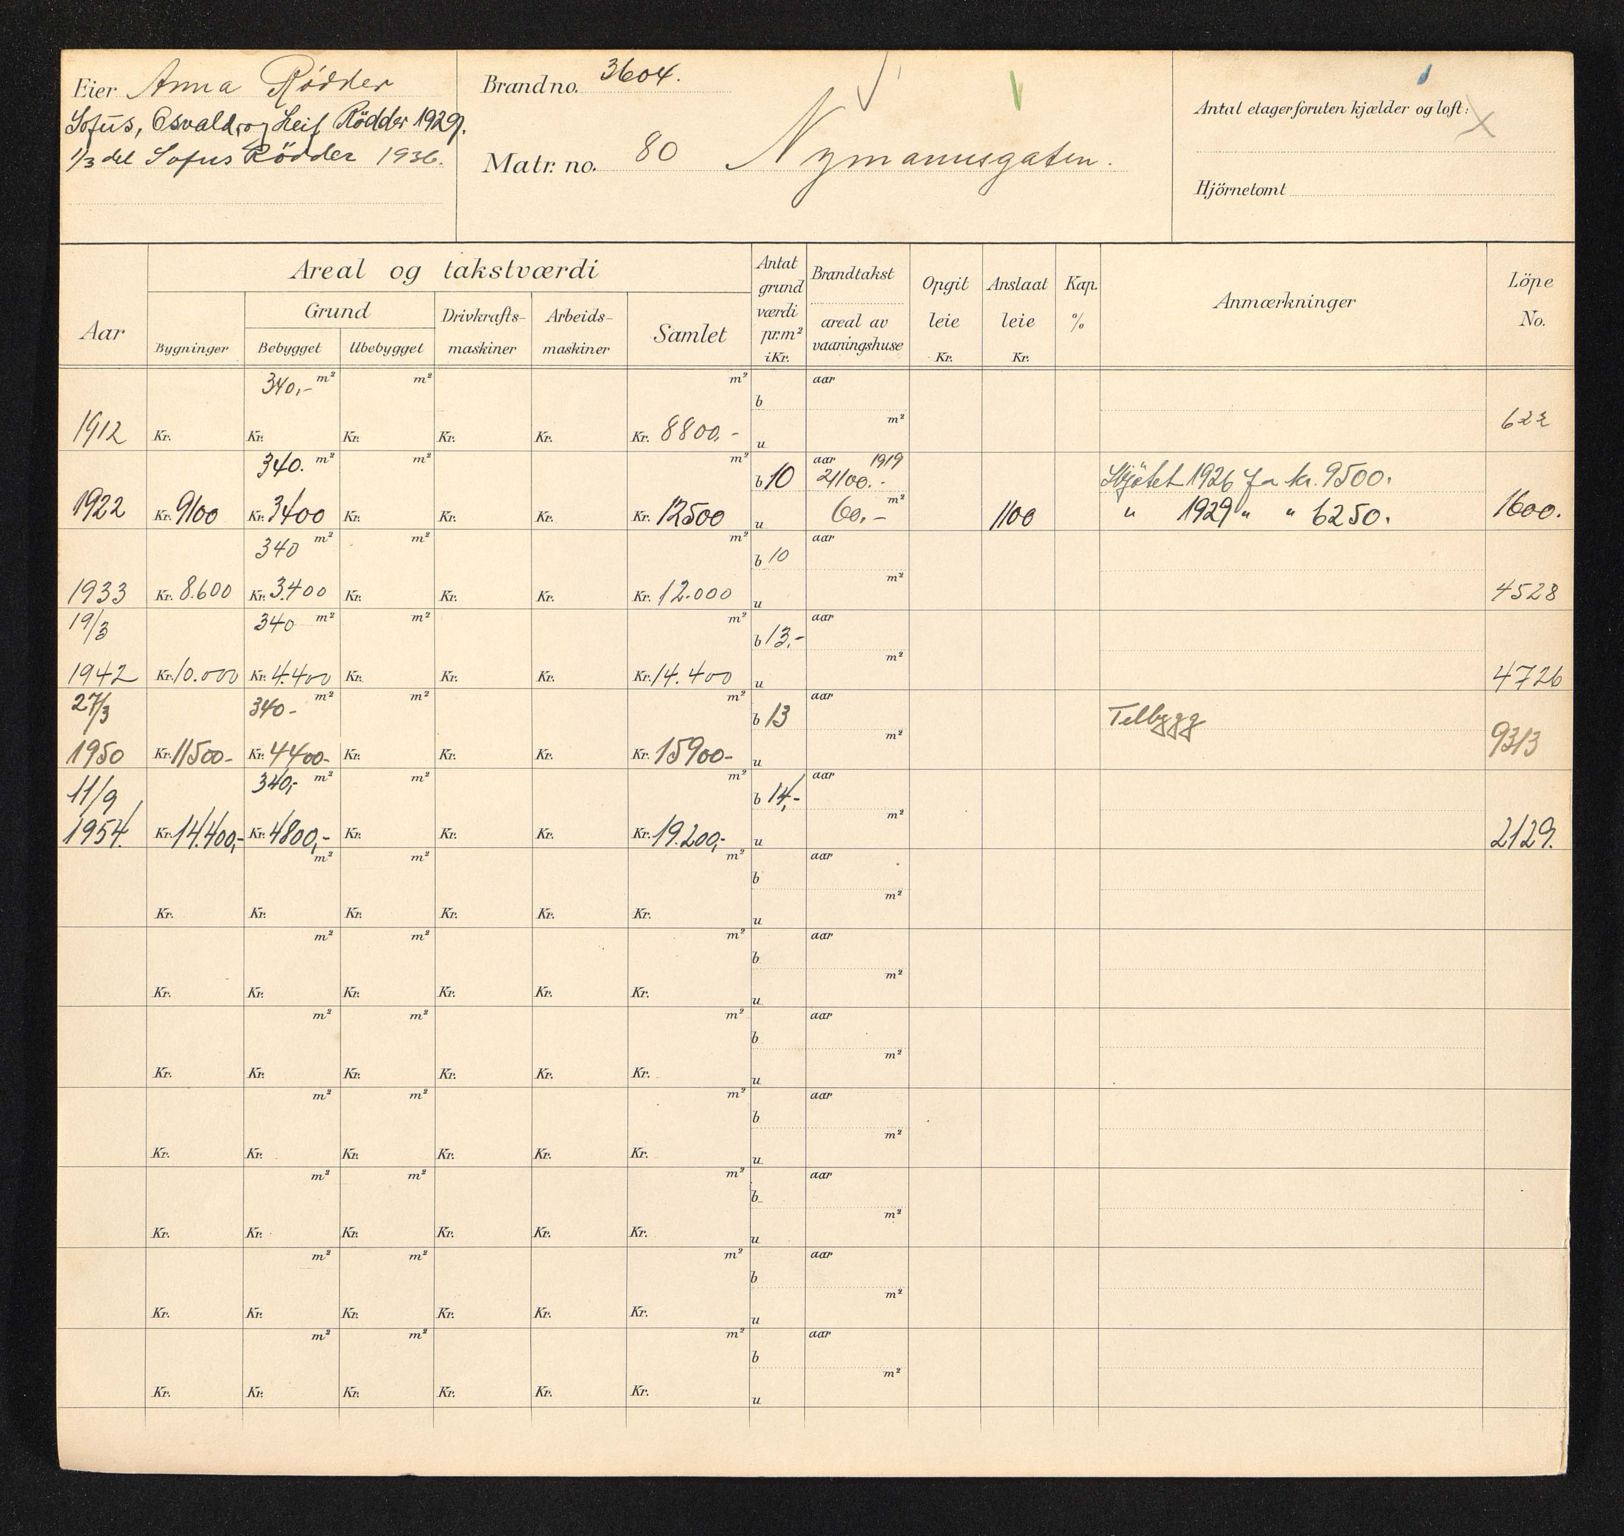 Eier Anna Rødder
Sofus, Osvald, og Leif Rødder 1929.
1/3 del Sofus Rödder 1936.
Brand no. 3604.
Matr. no. 80 Nymannsgaten.
Antal etager foruten kjælder og loft:
Hjörnetomt
Aar
Areal og takstværdi
Grund
Bygninger
Bebygget
Ubebygget
Drivkrafts-maskiner
Arbeids-maskiner
Samlet
Antat grund værdi pr. m² i Kr.
Brandtakst
areal av vaaningshuse
Opgit leie Kr.
Anslaat leie Kr.
Kap. %
Anmærkninger
Löpe No.
340,- m² m² m² b aar
1912 Kr. Kr. Kr. Kr. Kr. Kr. 8800,- u m² 622
340. m² m² m² b 10 aar 1919 Skjötet 1926 for kr. 9500.
1922 Kr. 9100 Kr. 3400 Kr. Kr. Kr. Kr. 12500 u 60,- m² 1100 " 1929 " " 6250. 1600.
340 m² m² m² b 10 aar
1933 Kr. 8.600 Kr. 3.400 Kr. Kr. Kr. Kr. 12.000 u m² 4528
19/3 340 m² m² m² b 13,- aar
1942 Kr. 10.000 Kr. 4.400 Kr. Kr. Kr. Kr. 14.400 u m² 4726
27/3 340- m² m² m² b 13 aar Tilbygg
1950 Kr. 11500- Kr. 4400- Kr. Kr. Kr. Kr. 15900- u m² 9313
11/9 340,- m² m² m² b 14,- aar
1954. Kr. 14.400,- Kr. 4800,- Kr. Kr. Kr. Kr. 19.200,- u m² 2129.
m² m² m² b aar
Kr. Kr. Kr. Kr. Kr. Kr. u m²
m² m² m² b aar
Kr. Kr. Kr. Kr. Kr. Kr. u m²
m² m² m² b aar
Kr. Kr. Kr. Kr. Kr. Kr. u m²
m² m² m² b aar
Kr. Kr. Kr. Kr. Kr. Kr. u m²
m² m² m² b aar
Kr. Kr. Kr. Kr. Kr. Kr. u m²
m² m² m² b aar
Kr. Kr. Kr. Kr. Kr. Kr. u m²
m² m² m² b aar
Kr. Kr. Kr. Kr. Kr. Kr. u m²